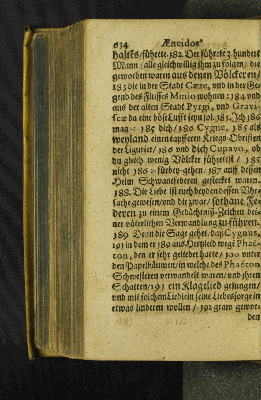 634 Æneidos
haltes/führete. 182. Der führete 3. hundert
Mann / alle gleich willig ihm zu folgen / die
geworben waren aus denen Völckeren/
183 die in der Stadt Cære, und in der Ge-
gend des Flusses Minio wohnen: 184 und
aus der alten Stadt Pyrgi, und Gravi-
scæ da eine böse Lufft seyn sol. 185. Ich 186
mag 185 dich / 186 Cygne, 185 als
weyland einen tapfferen Kriegs-Obristen
der Ligurier / 186 und dich Cupavo, ob
du gleich wenig Völcker führetest / 185
nicht 186 fürbey-gehen. 187 auff dessen
Helm Schwansfederen gestecket waren.
188. Die Liebe ist euch beyden dessen Uhr-
sache gewesen/und dit zwar/ sothane Fe-
deren zu einem Gedächtniß-Zeichen dei-
ner väterlichen Verwandlung zu führen.
189. Denn die Sage gehet, daß Cygnus,
191 in dem er 189 aus Hertzleid wege Phaë-
ton, den er sehr geliebet hatte / 190 unter
den Papelbäumen/in welche des Phaëton
Schwesteren verwandelt waren/und ihren
Schatten/191 ein Klagelied gesungen/
und mit solchem Liedlein seine Liebessorge in
etwas linderen wollen / 192 graw gewor-
den